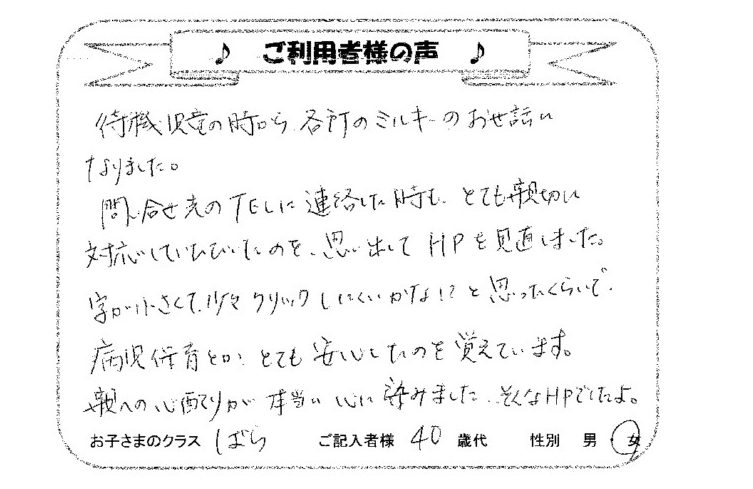 ♪ ご利用者様の声 ♪
待機児童の時から各所のミルキーのお世話に
なりました。
問い合せ先のTELに連絡した時も、とても親切に
対応していただいたのを、思い出してHPを見直しました。
字が小さくて、少々クリックしにくいかな!?と思ったくらいで、
病児保育とか、とても安心したのを覚えています。
親への心配りが本当に心に染みました。そんなHPでしたよ。
お子さまのクラス ばら ご記入者様 40 歳代 性別 男 女